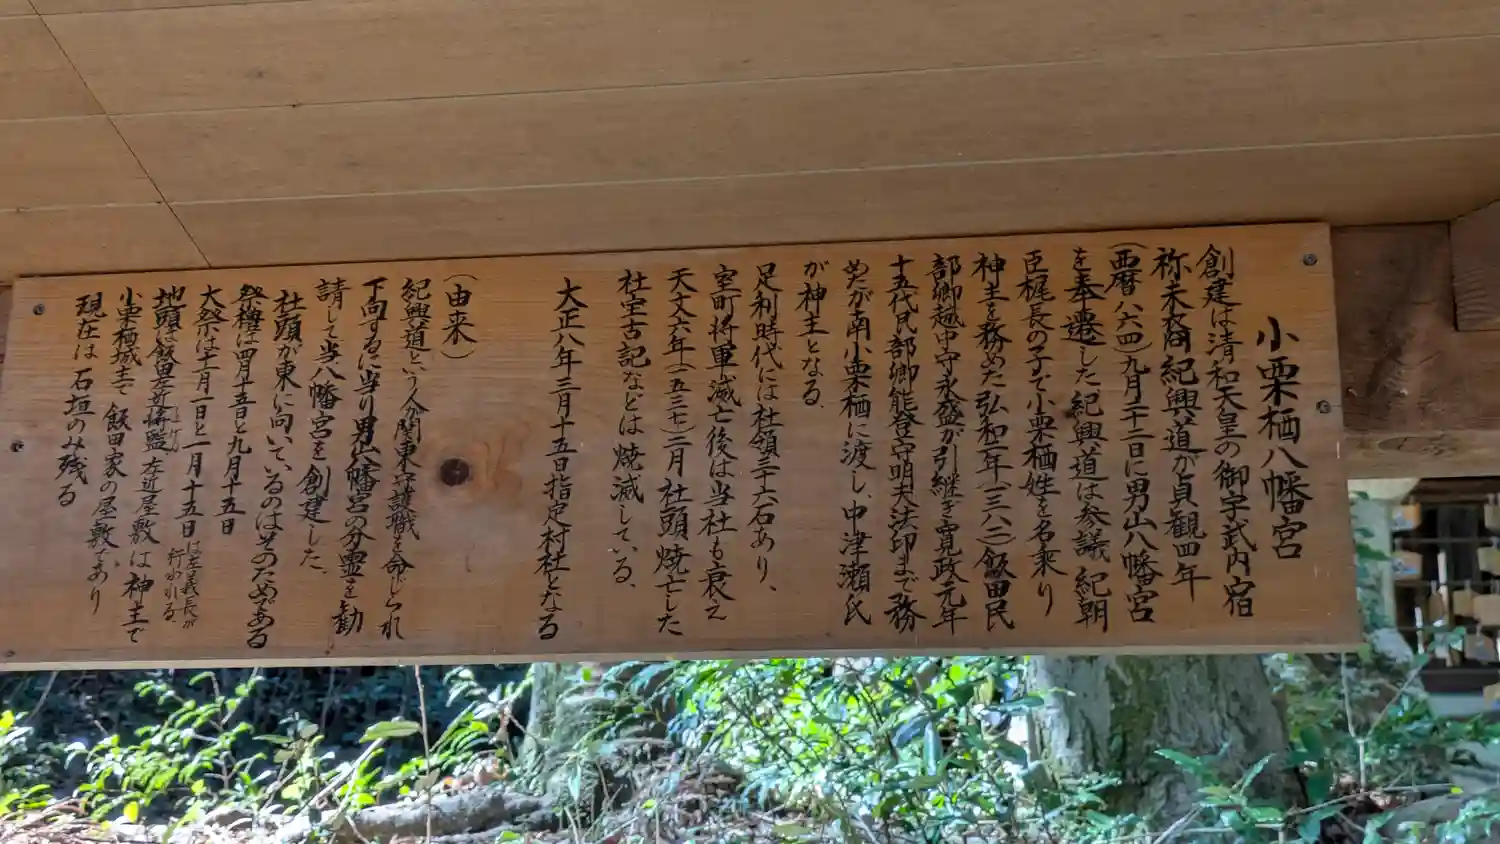 小栗栖八幡宮
創建は清和天皇の御宇武内宿
祢末裔紀興道が貞観四年
(西暦八六四)九月二十二日に男山八幡宮
を奉遷した紀興道は参議紀朝
臣梶長の子で小栗栖姓を名乗り
神主を務めた弘和二年(一三八二)飯田民
部卿越中守永盛が引継ぎ寛政元年
十五代民部卿能登守明夫法印まで務
めたが南小栗栖に渡し、中津瀬氏
が神主となる、
足利時代には社領三十六石あり、
室町将軍滅亡後は当社も衰え
天文六年(一五三七)二月社頭焼亡した
社宝古記などは焼滅している、
大正八年三月十五日指定村社となる
(由来)
紀興道という人が関東守護職を命じられ
下向するに当り男山八幡宮の分霊を勧
請して当八幡宮を創建した、
社頭が東に向いているのはそのためである
祭禮は四月十五日と九月十五日
大祭は十一月一日と一月十五日は左義長が行われる、
地頭は飯田左近将監左近屋敷は神主で
小栗栖城主で飯田家の屋敷であり
現在は石垣のみ残る